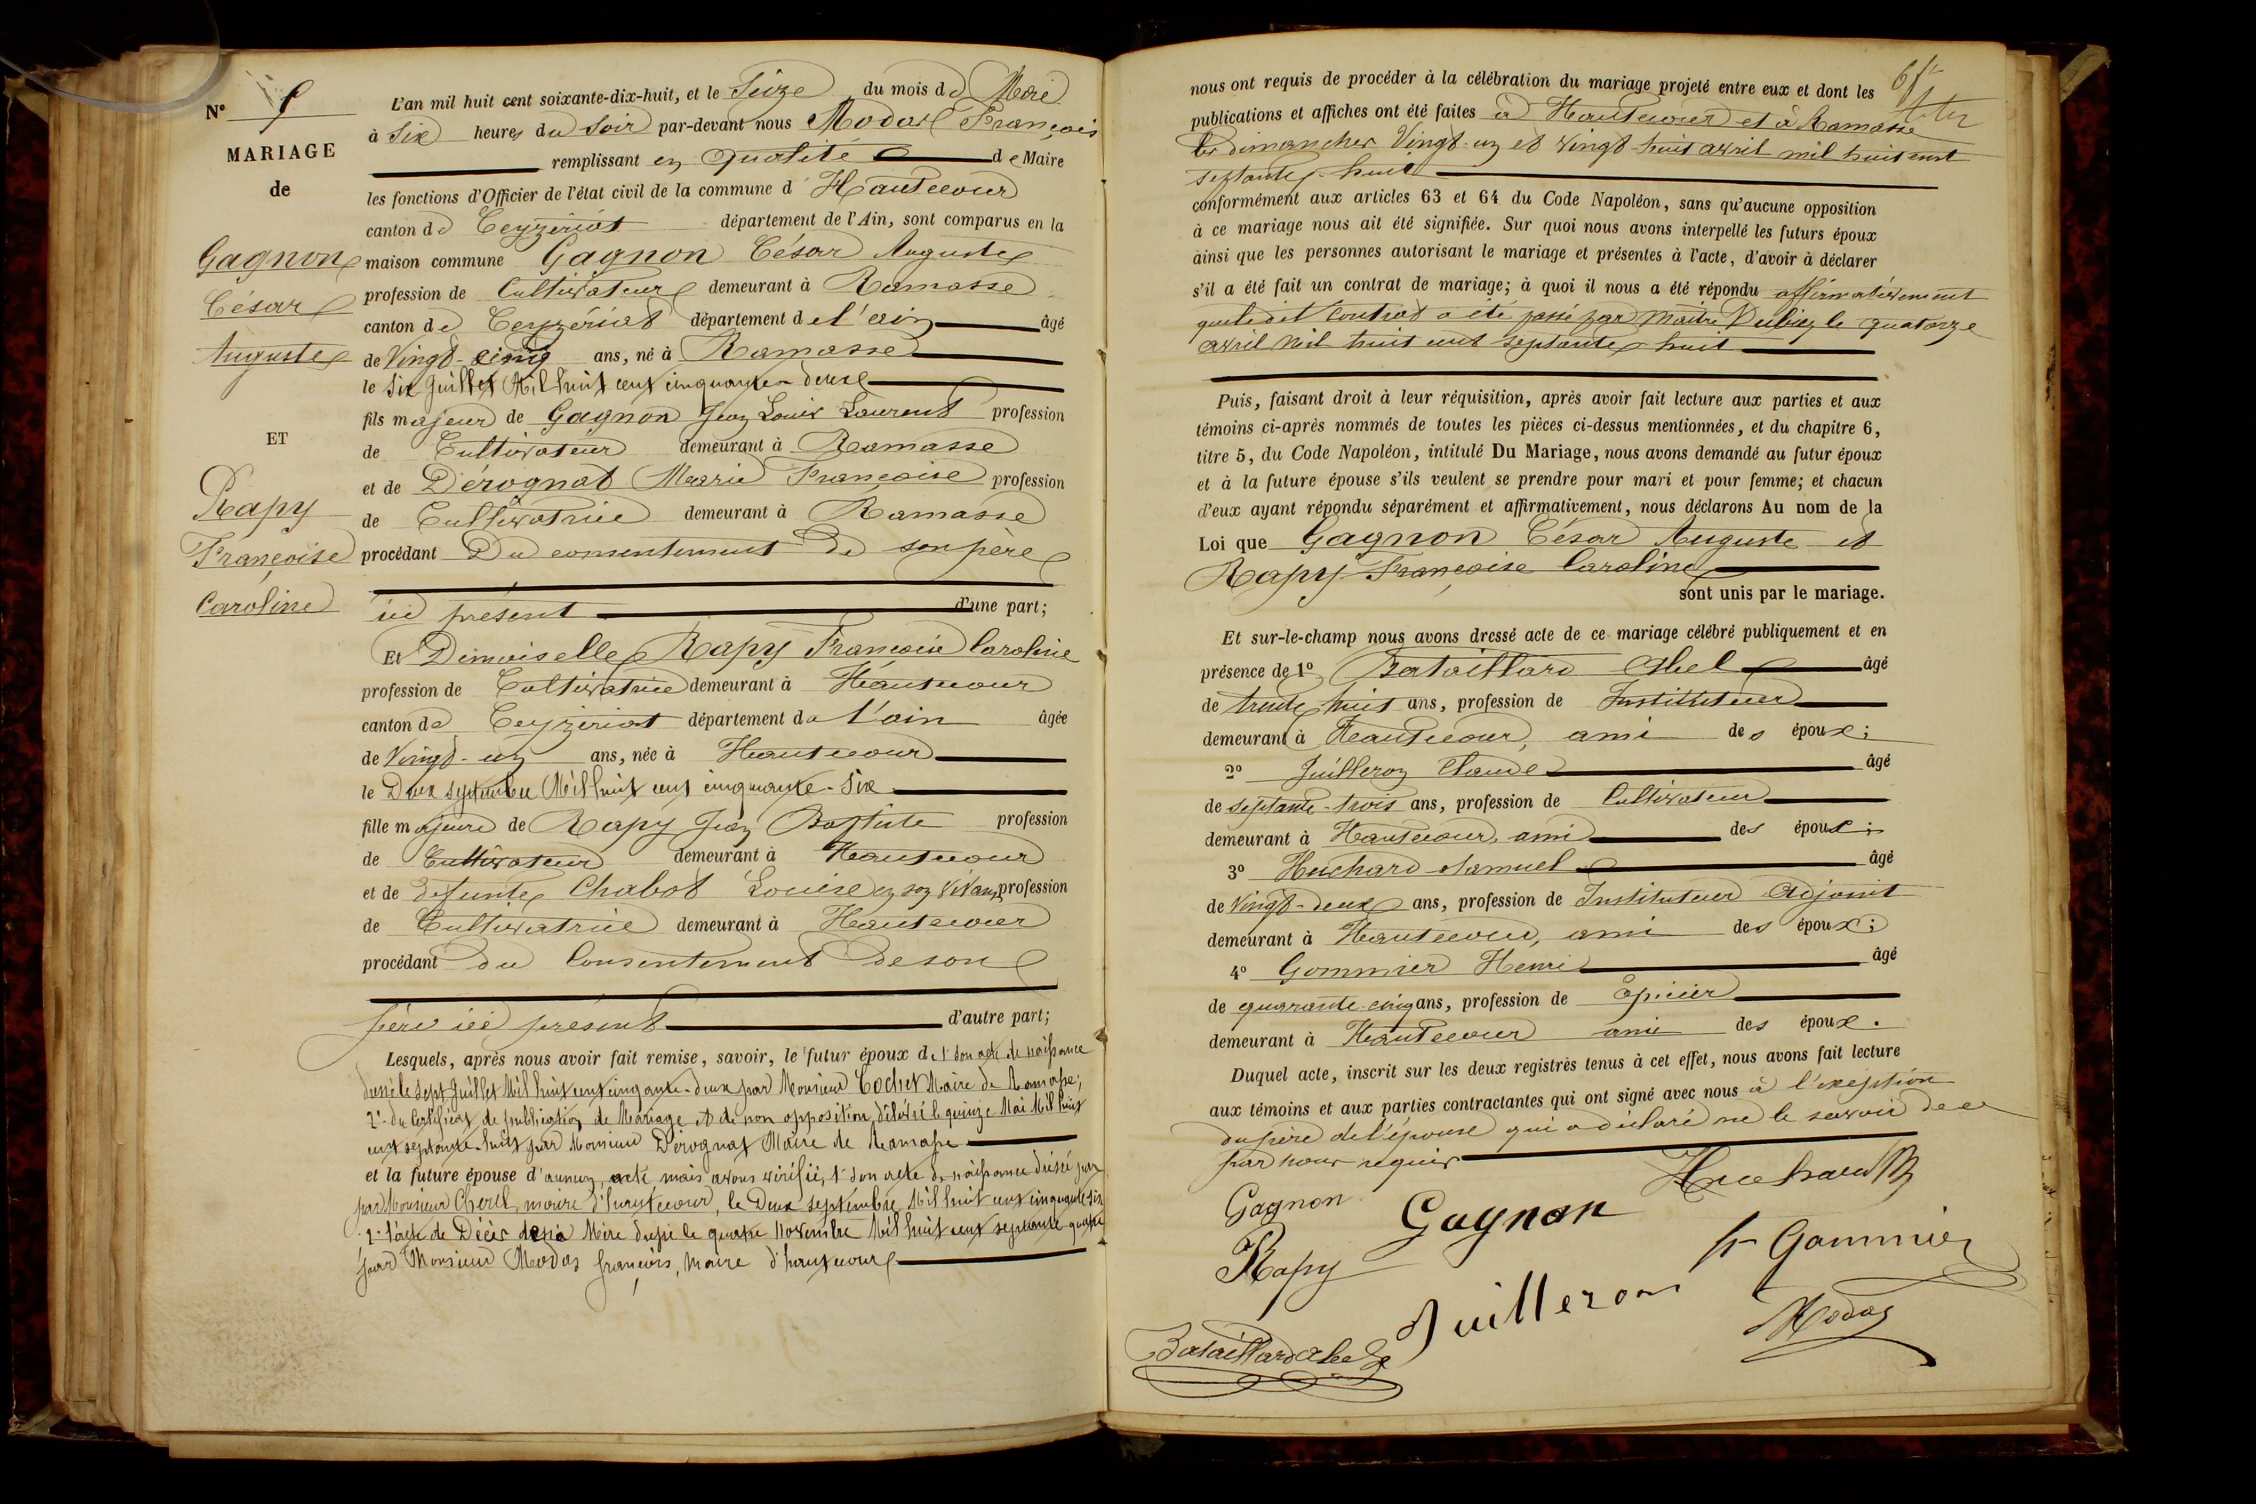 N°
MARIAGE
de
Gagnon
César
Auguste
ET
Rapy
Françoise
Caroline
L'an mil huit cent soixante-dix-huit, et le Seize du mois de Mai
à Six heures du Soir par-devant nous Modas François
remplissant en qualité de Maire
les fonctions d'Officier de l'état civil de la commune d'Hautecour
canton de Ceyzériat département de l'Ain, sont comparus en la
maison commune Gagnon César Auguste
profession de Cultivateur demeurant à Ramasse
canton de Ceyzériat département de l'ain âgé
de Vingt-cinq ans, né à Ramasse
le Six Juillet Mil huit cent cinquante-deux
fils majeur de Gagnon Jean Louis Laurent profession
de Cultivateur demeurant à Ramasse
et de Dérognat Marie Françoise profession
de Cultivatrice demeurant à Ramasse
procédant Du consentement de son père
ici présent d'une part;
Et Demoiselle Rapy Françoise Caroline
profession de Cultivatrice demeurant à Hautecour
canton de Ceyzériat département de l'ain âgée
de Vingt-un ans, née à Hautecour
le Deux septembre Mil huit cent cinquante-six
fille majeure de Rapy Jean Baptiste profession
de Cultivateur demeurant à Hautecour
et de defunte Chabot Louise en son vivant profession
de Cultivatrice demeurant à Hautecour
procédant du Consentement de son
père ici présent d'autre part;
Lesquels, après nous avoir fait remise, savoir, le futur époux de 1° son acte de naissance
dressé le sept Juillet Mil huit cent cinquante-deux par Monsieur Cochet Maire de Ramasse;
2° du Certificat de publication de Mariage et de non opposition délivré le quinze Mai Mil huit
cent septante-huit par Monsieur Dérognat Maire de Ramasse
et la future épouse d'aucun acte mais avons vérifié, 1° son acte de naissance dressé par
par Monsieur Cherel maire d'hautecour, le Deux septembre Mil huit cent cinquante six
2° l'acte de Décès de sa Mère dressé le quatre Novembre Mil huit cent septante quatre
par Monsieur Modas françois, Maire d'hautecour
nous ont requis de procéder à la célébration du mariage projeté entre eux et dont les
publications et affiches ont été faites à Hautecour et à Ramasse
les dimanches Vingt-un et vingt-huit avril mil huit cent
septante-huit
conformément aux articles 63 et 64 du Code Napoléon, sans qu'aucune opposition
à ce mariage nous ait été signifiée. Sur quoi nous avons interpellé les futurs époux
ainsi que les personnes autorisant le mariage et présentes à l'acte, d'avoir à déclarer
s'il a été fait un contrat de mariage; à quoi il nous a été répondu affirmativement
que le dit Contrat a été passé par Maître le quatorze
avril Mil huit cent septante huit
Puis, faisant droit à leur réquisition, après avoir fait lecture aux parties et aux
témoins ci-après nommés de toutes les pièces ci-dessus mentionnées, et du chapitre 6,
titre 5, du Code Napoléon, intitulé Du Mariage, nous avons demandé au futur époux
et à la future épouse s'ils veulent se prendre pour mari et pour femme; et chacun
d'eux ayant répondu séparément et affirmativement, nous déclarons Au nom de la
Loi que Gagnon César Auguste et
Rapy Françoise Caroline
sont unis par le mariage.
Et sur-le-champ nous avons dressé acte de ce mariage célébré publiquement et en
présence de 1° Bataillard Abel âgé
de trente huit ans, profession de Instituteur
demeurant à Hautecour, ami des époux;
2° Juilleron Claude âgé
de septante-trois ans, profession de Cultivateur
demeurant à Hautecour, ami des époux;
3° Huchard Samuel âgé
de Vingt-deux ans, profession de Instituteur Adjoint
demeurant à Hautecour, ami des époux;
4° Gommier Henri âgé
de quarante-cinq ans, profession de Epicier
demeurant à Hautecour ami des époux.
Duquel acte, inscrit sur les deux registres tenus à cet effet, nous avons fait lecture
aux témoins et aux parties contractantes qui ont signé avec nous à l'exéption
du père de l'épouse qui a déclaré ne le savoir de ce
par nous requis
Huchard
Gagnon Gagnon
Rapy Gommier
Juilleron
Modas
Bataillard abel